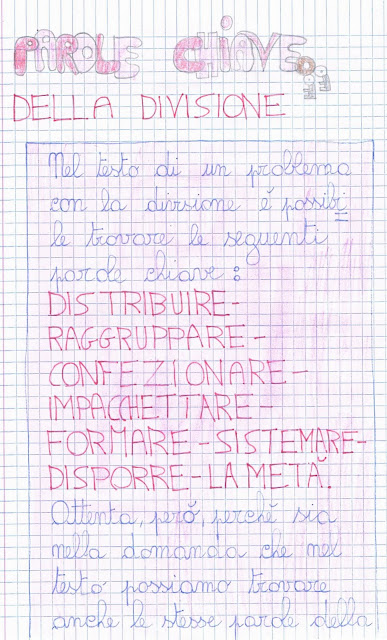 PAROLE CHIAVE
DELLA DIVISIONE
Nel testo di un problema
con la divisione è possibi=
le trovare le seguenti
parole chiave:
DISTRIBUIRE-
RAGGRUPPARE-
CONFEZIONARE-
IMPACCHETTARE-
FORMARE-SISTEMARE-
DISPORRE-LA METÀ.
Attenta, però, perché sia
nella domanda che nel
testo possiamo trovare
anche le stesse parole della